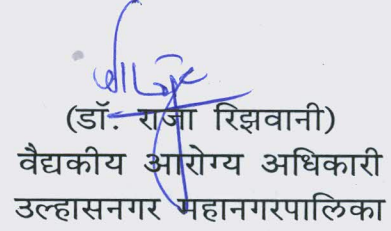 (डॉ. राजा रिझवानी)
वैद्यकीय आरोग्य अधिकारी
उल्हासनगर महानगरपालिका